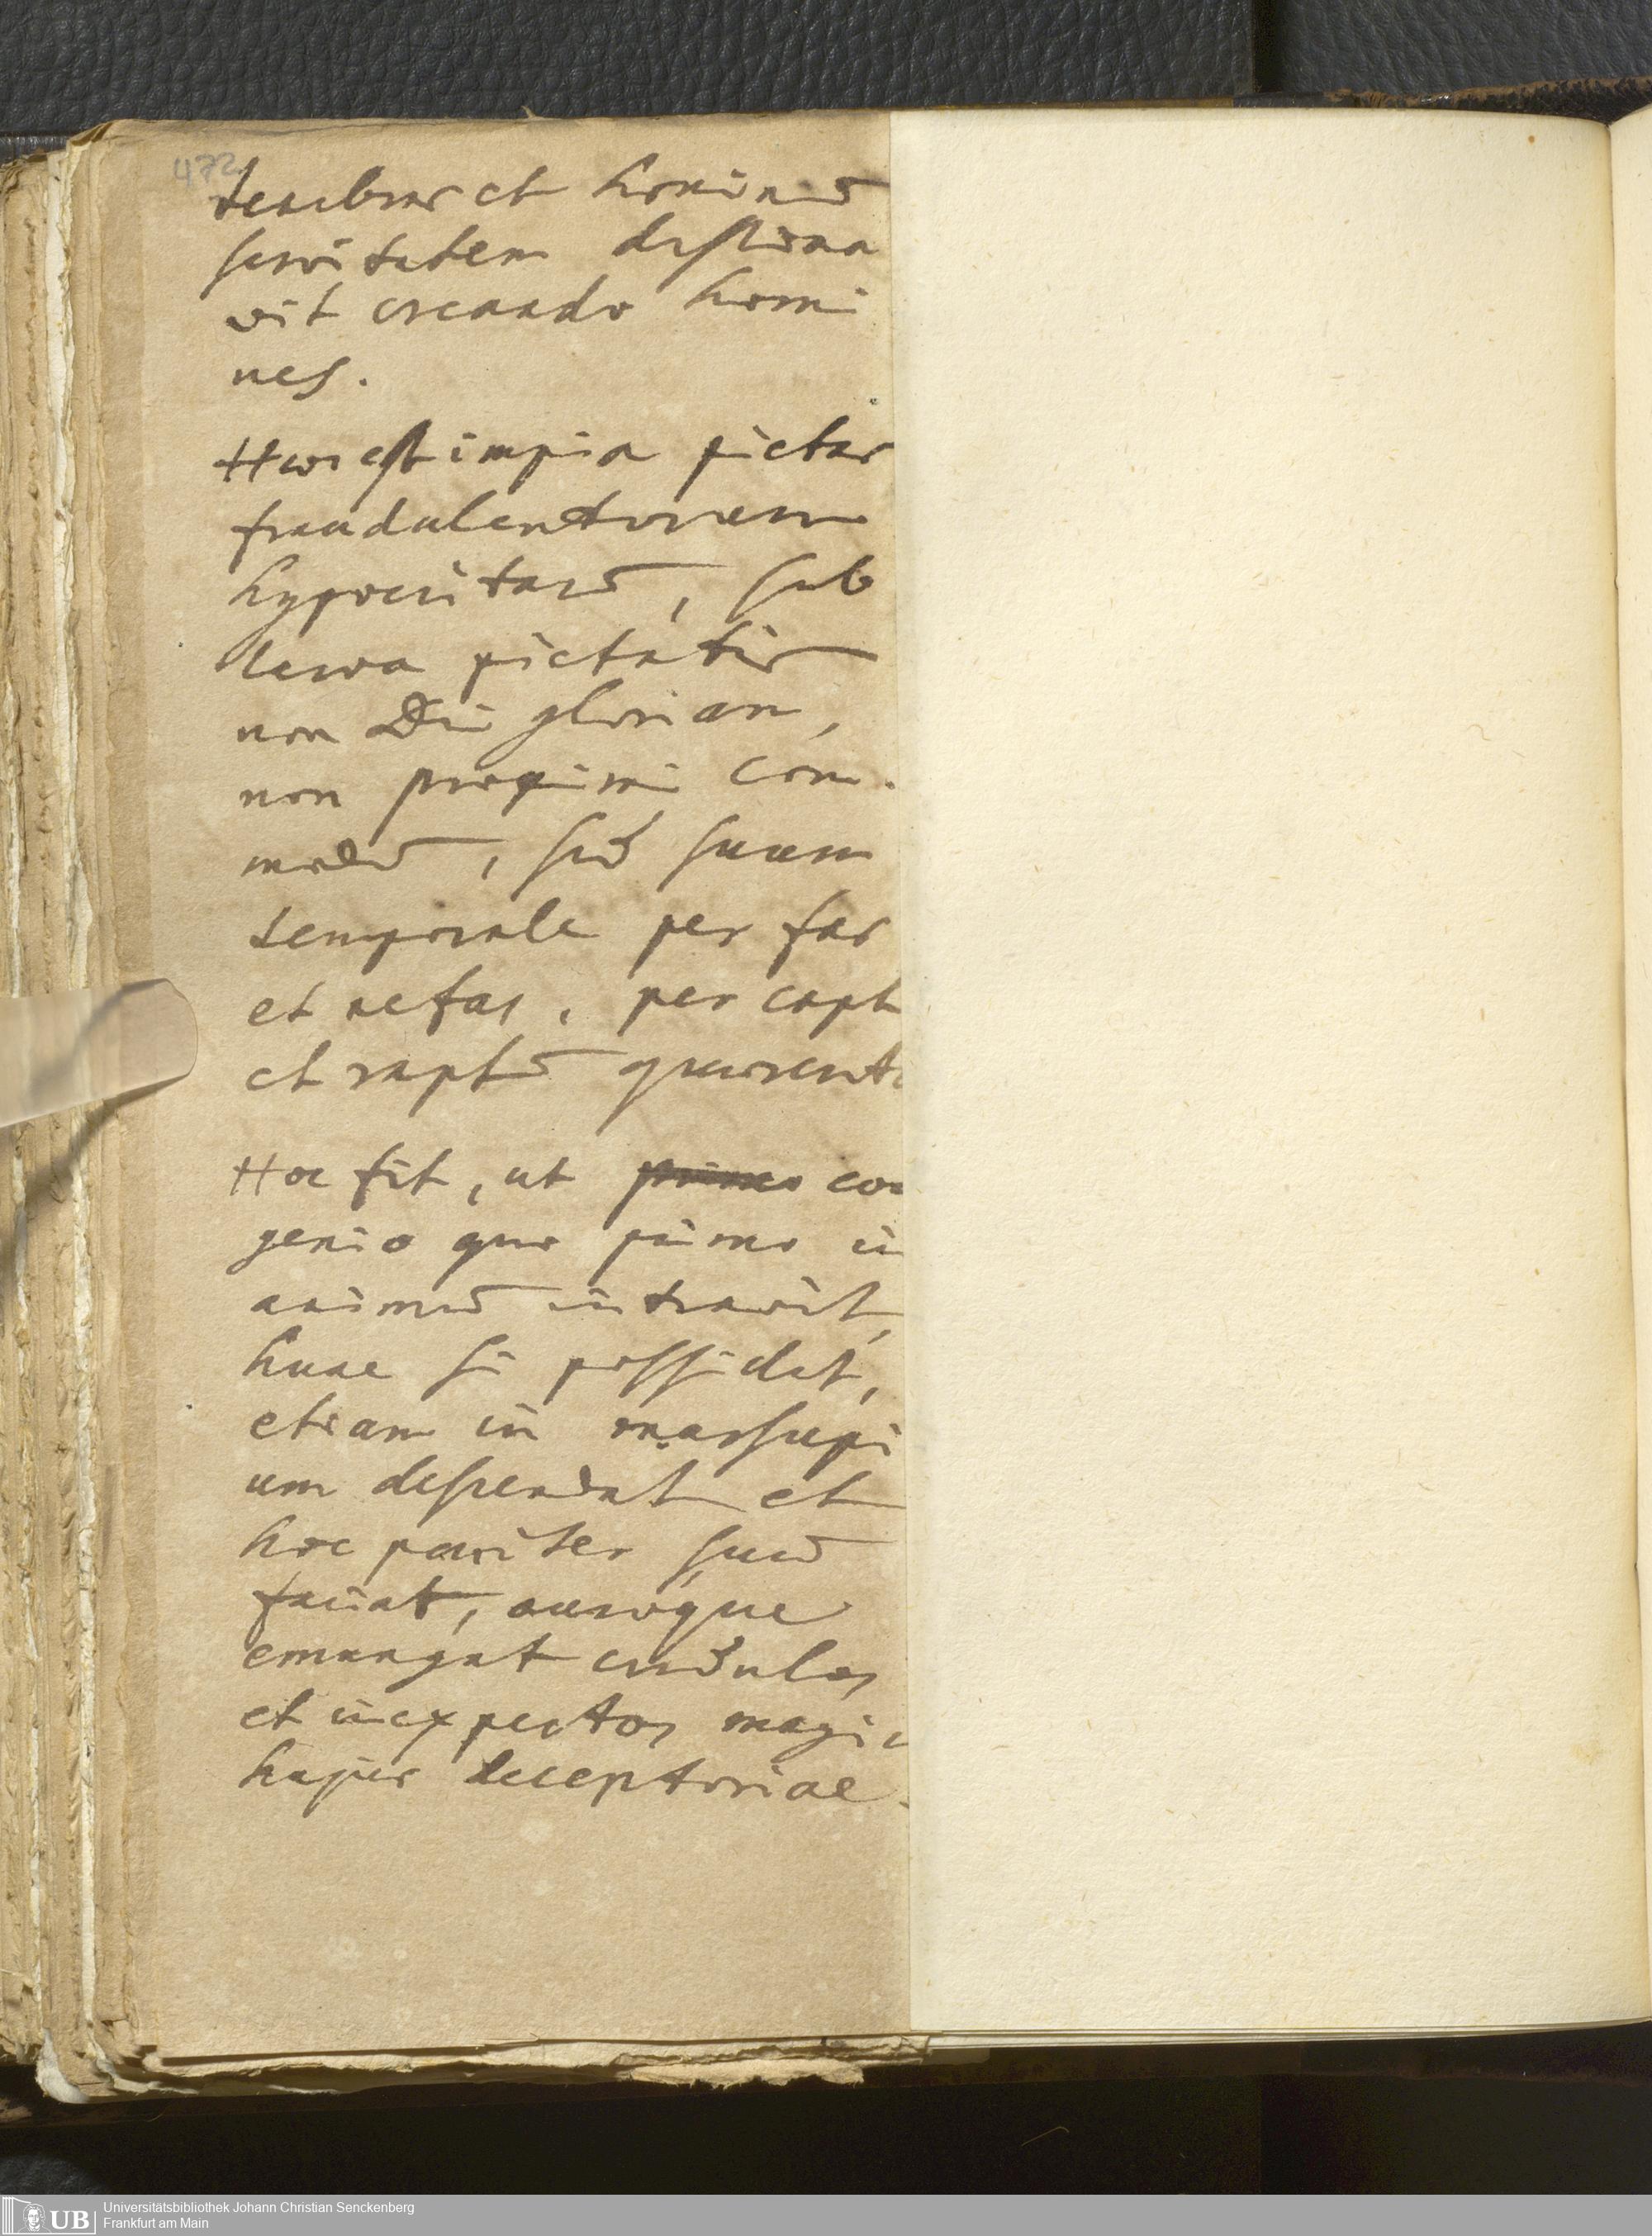 472
tenebras et hominū
servitutem destina
vit creando homi
nes.
Haec est impia pietas
fraudulentorum
hypocritarū, sub
larva pietatis
non Dei gloriam,
non proximi com
modū, sed suum
temporale per fas
et nefas, per capt
et raptū quaerenti
Hoc fit, ut primo co
genio quo primo in
animū intravit,
hunc si possidet,
etiam in marsupi
um descendat et
hoc pariter suū
faciat, auroque
emungat credulos
et inexpertos magi
hujus deceptoriae.
Universitätsbibliothek Johann Christian Senckenberg
Frankfurt am Main
UB